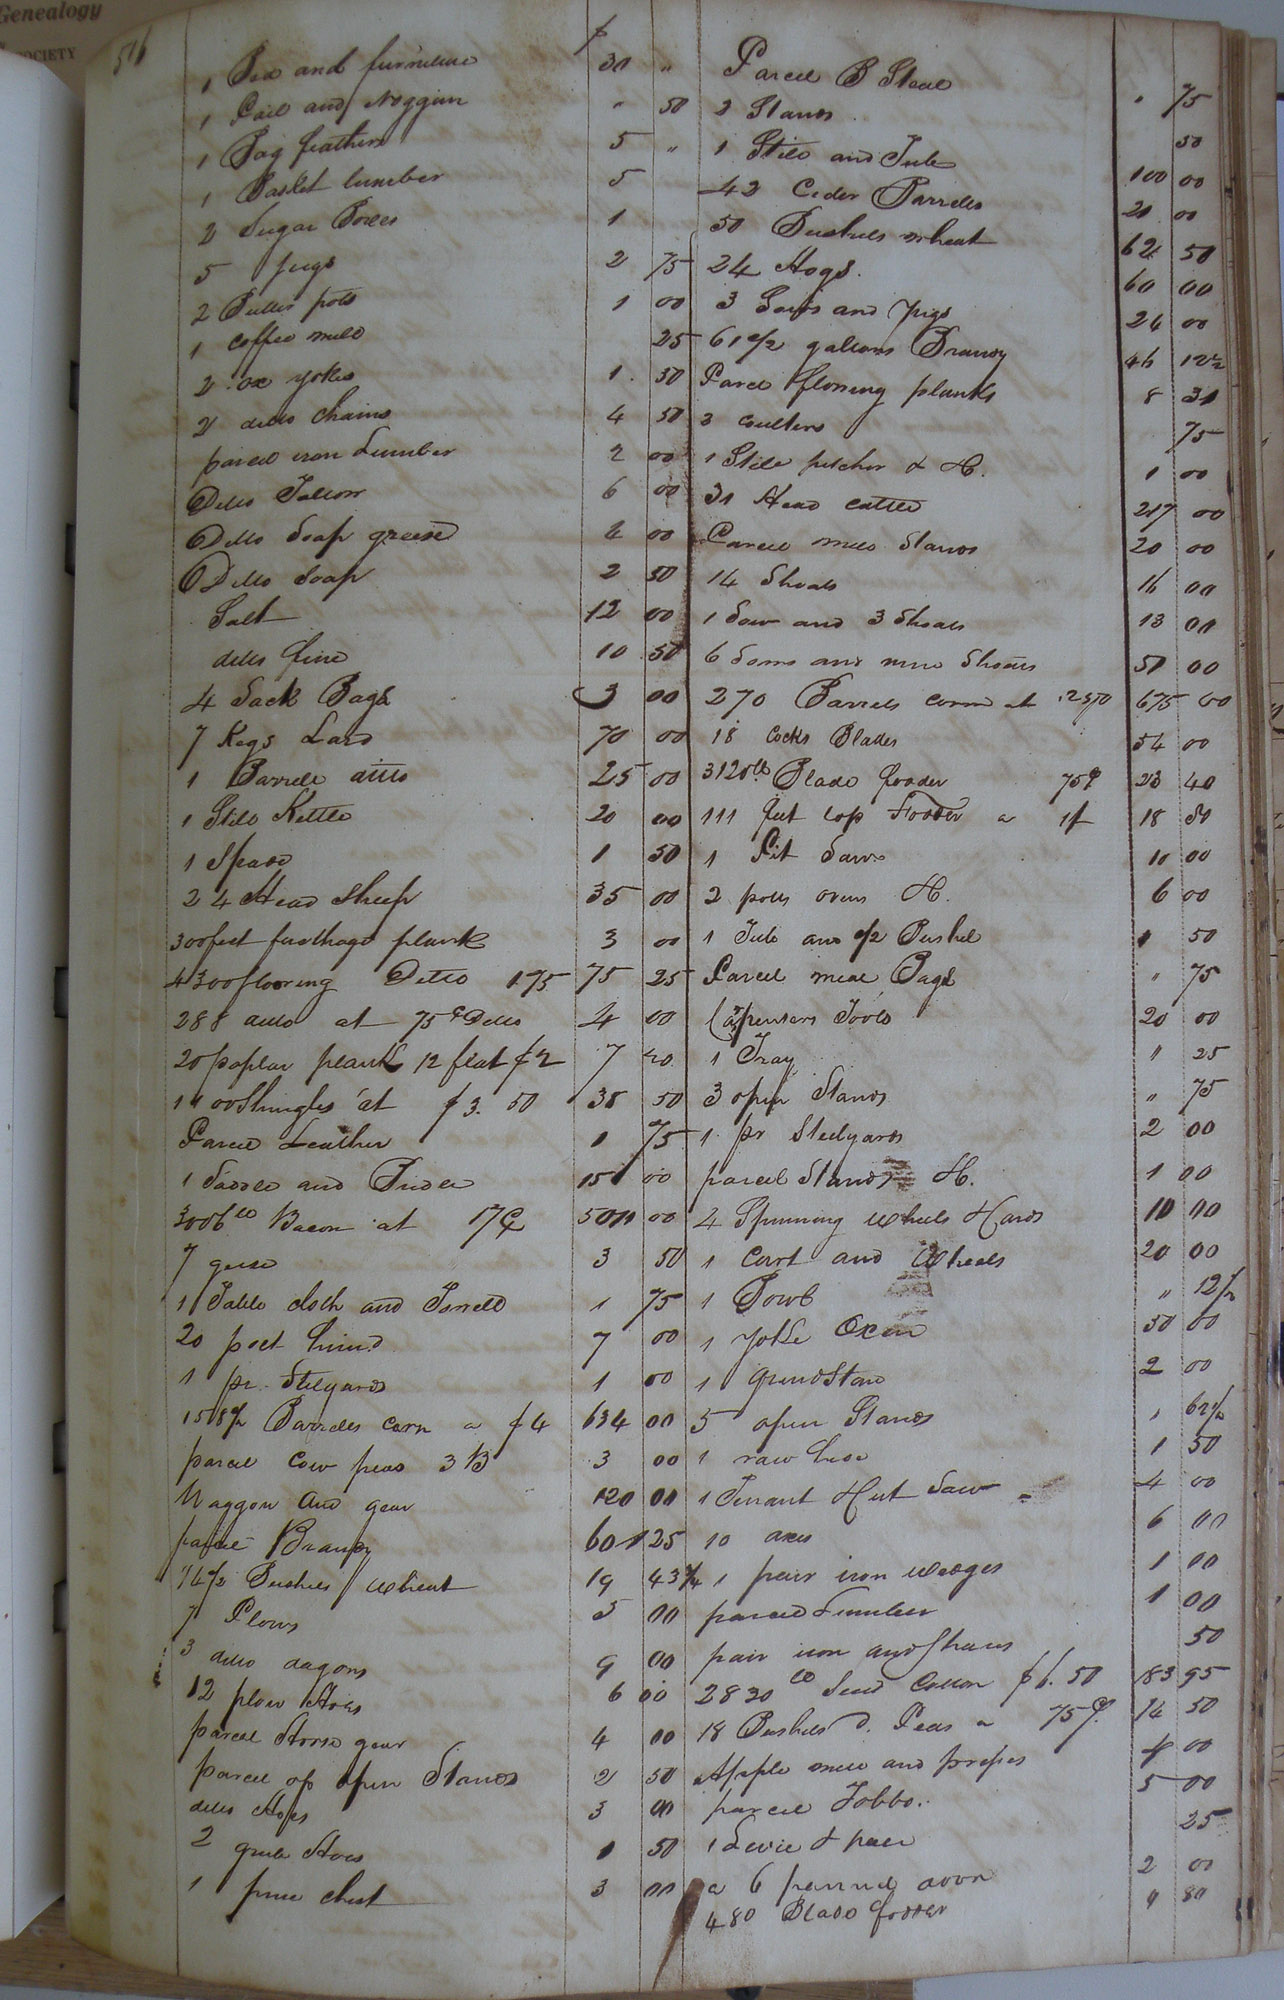 Genealogy
SOCIETY
516
$
1 Bed and furniture 30 "
1 Pail and Noggin " 50
1 Bag feathers 5 "
1 Basket lumber 5
2 Sugar Boxes 1
5 jugs 2 75
2 Butter pots 1 00
1 coffee mill 25
2 ox yokes 1 50
2 ditto chains 4 50
parcel iron Lumber 2 00
Ditto Tallow 6 00
Ditto Soap grease 4 00
Ditto Soap 2 50
Salt 12 00
ditto fine 10 50
4 Sack Bags 3 00
7 Kegs Lard 70 00
1 Barrell ditto 25 00
1 Still Kettle 20 00
1 Spade 1 50
24 Head Sheep 35 00
300 feet plank 3 00
4300 flooring Ditto 1.75 75 25
288 ditto at 75 ¢ Ditto 4 00
20 poplar plank 12 flat $2 7 20
Shingles at $3.50 38 50
Parcel Leather 1 75
1 Saddle and Bridle 15 00
lb Bacon at 17 ¢ 00
7 geese 3 50
1 Table cloth and Towell 1 75
20 7 00
1 pr. Stilyards 1 00
158 1/2 Barrells corn a $4 634 00
parcel Cow peas 3 B 3 00
Waggon and gear 120 00
Brandy 25
Bushels Wheat 19 43 3/4
7 Plows 5 00
3 ditto dagons 9 00
12 plow Hoes 6 00
parcel Horse gear 4 00
parcel of open Stands 2 50
ditto Hoes 3 00
2 grub Hoes 1 50
1 pine chest 3 00
Parcel B Steal " 75
2 Stands 50
1 Still and Tub 100 00
42 Ceder Barrells 20 00
50 Bushels wheat 62 50
24 Hogs. 60 00
3 Sows and pigs 24 00
61 1/2 gallons Brandy 46 12 1/2
Parcel flooring planks 8 30
3 coulters 75
1 Stile pitcher & H. 1 00
31 Head cattle 217 00
Parcel Stands 20 00
14 Shoats 16 00
1 Sow and 3 Shoats 13 00
6 Sows and nine Shoats 50 00
270 Barrels corn at 2.50 675 00
18 Cocks Blades 54 00
3120 lb Blade fodder 75 ¢ 23 40
111 feet top Fodder a 18 80
1 Pit Saw 10 00
2 potts ovens H. 6 00
1 Tub and 1/2 Bushel 1 50
Parcel meal Bags " 75
Carpenters Tools 20 00
1 Tray " 25
3 open Stands " 75
1 pr Steelyards 2 00
parcel Stands H. 1 00
4 Spinning wheels Cards 10 00
1 Cart and Wheels 20 00
1 Bowl " 12 1/2
1 Yoke Oxen 50 00
1 grindStone 2 00
5 open Stands " 62 1/2
1 raw hide 1 50
1 Tenant Cut Saw 4 00
10 axes 6 00
1 pair iron wedges 1 00
parcel Lumber 1 00
pair iron 50
2830 lb Seed Cotton $6.50 183 95
18 Bushels Peas a 75 ¢ 14 50
Apple mill and 4 00
parcel Tobbo. 5 00
1 & pail 25
2 00
480 Blade fodder 80